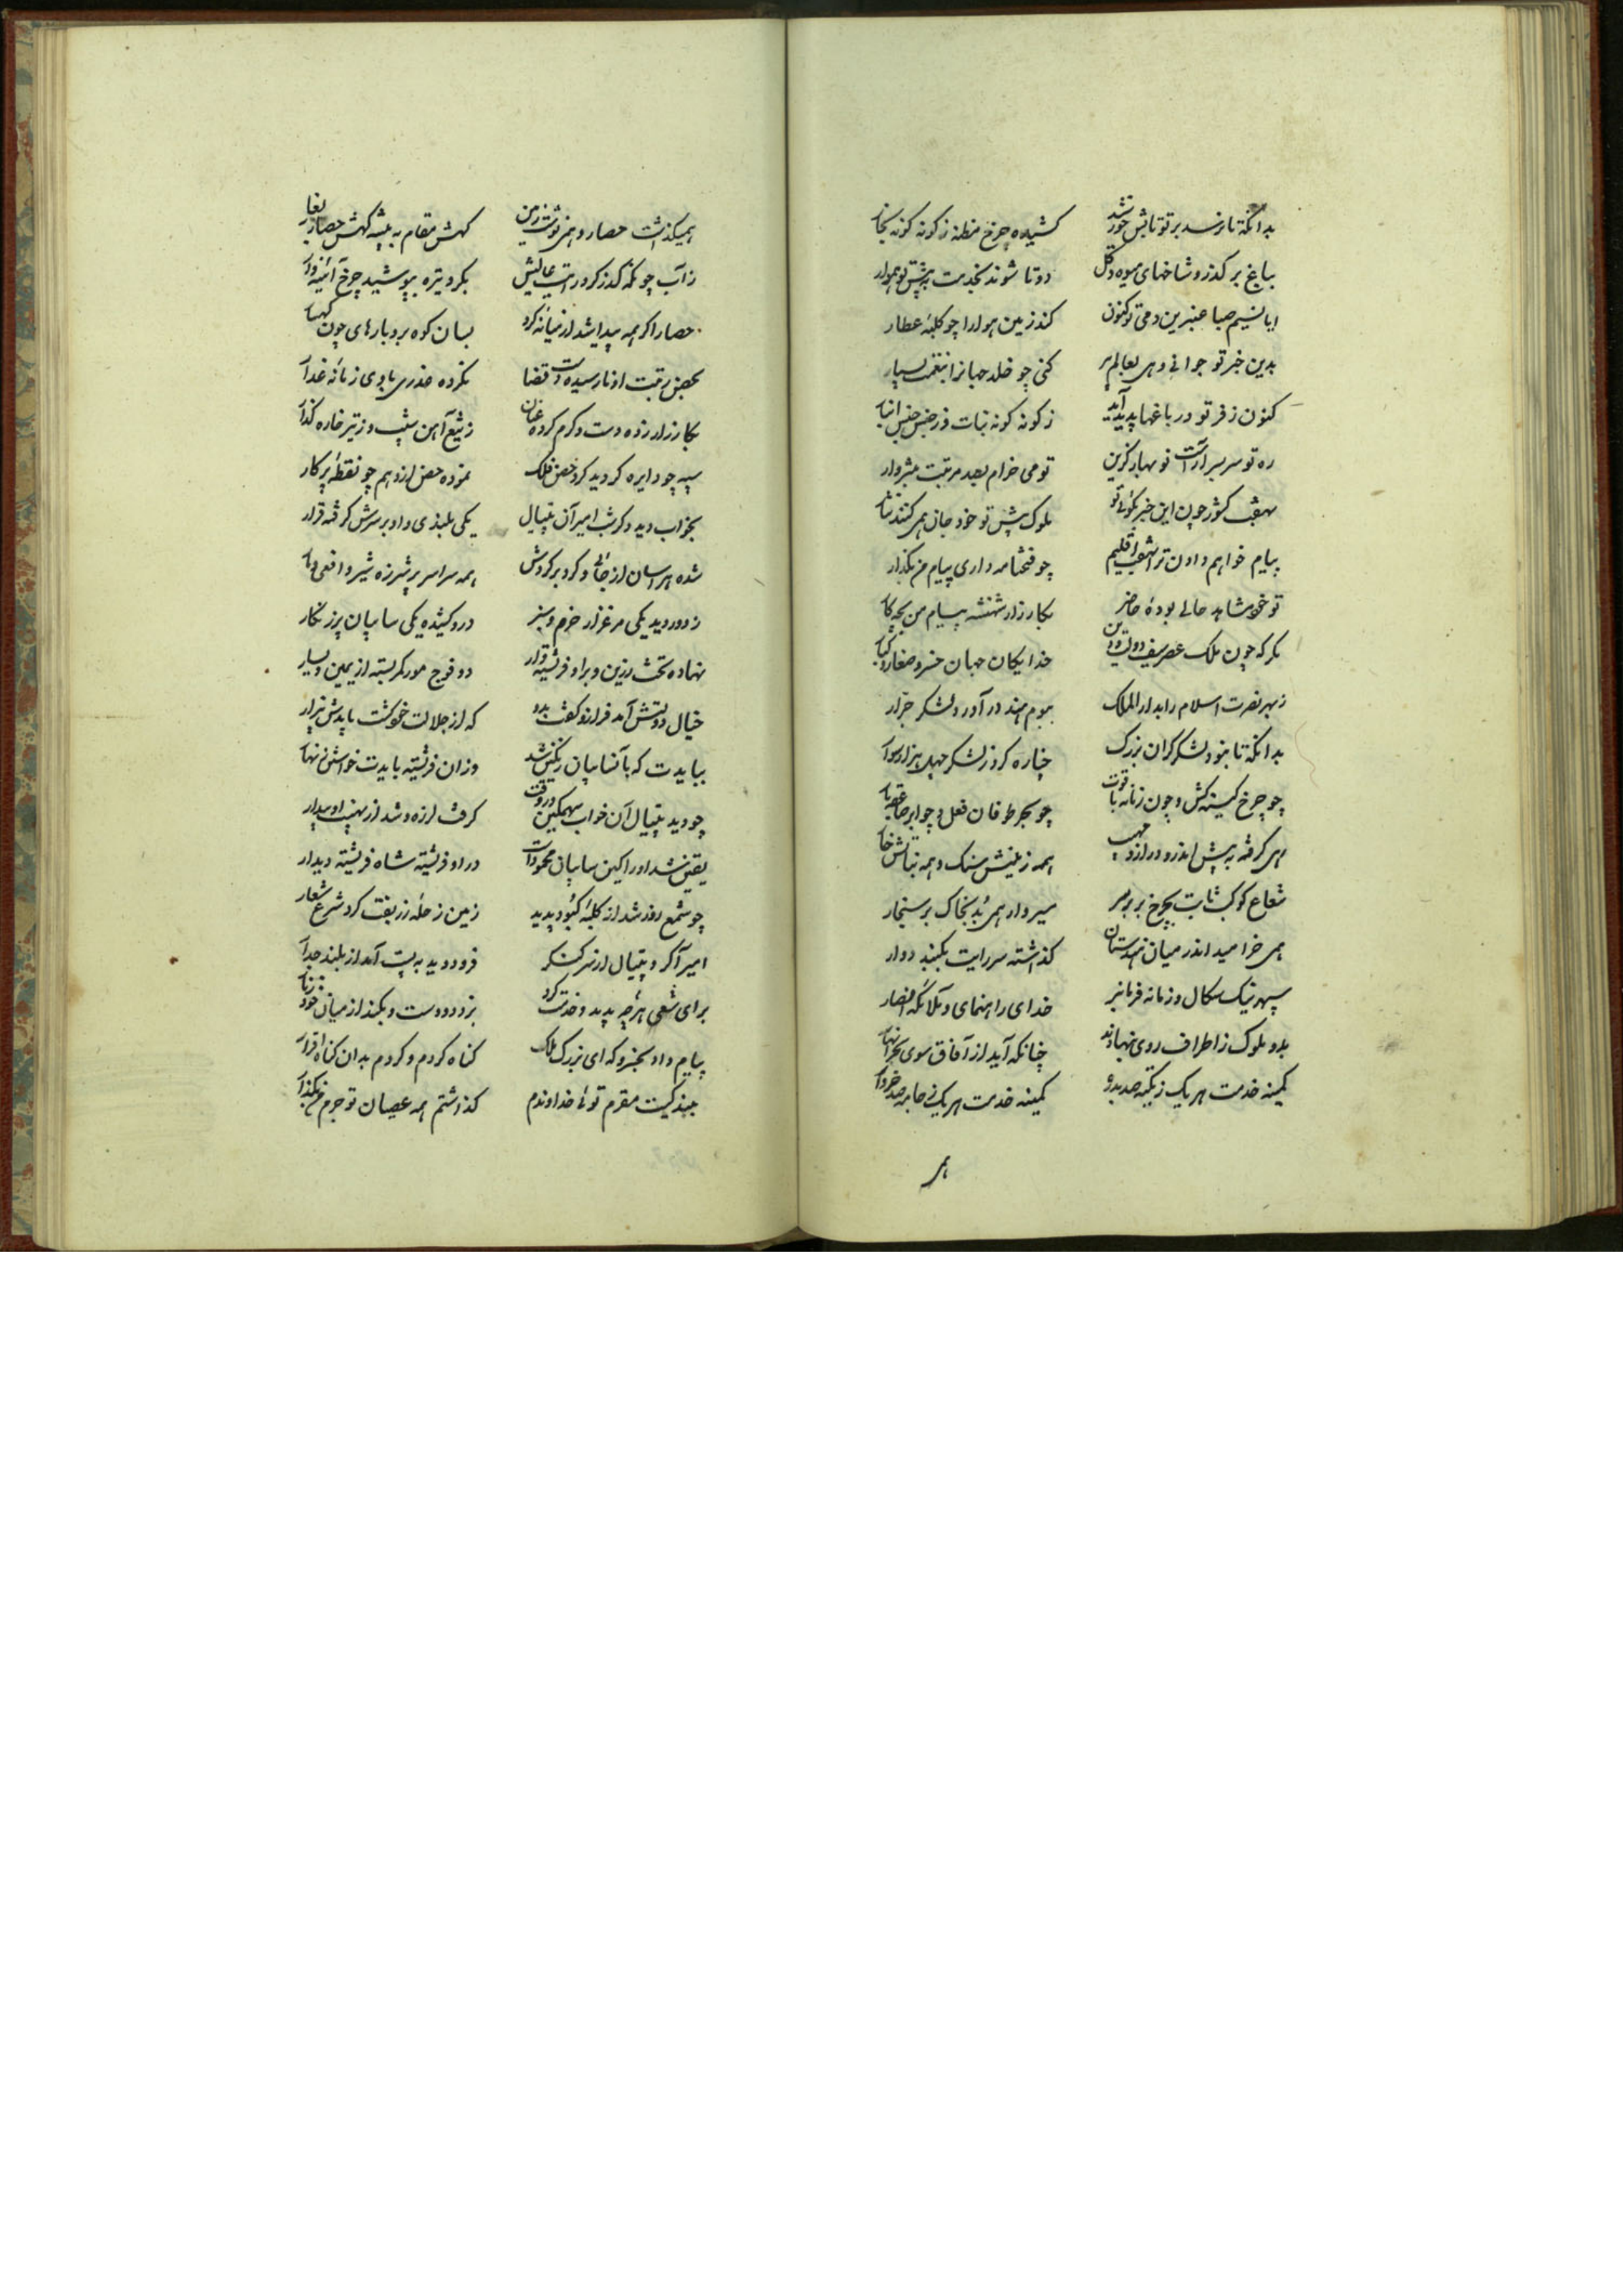 بدانکه تا نرسد بر تو تابش خورشید کشیده چرخ مظله ز کونه کونه بخار
بباغ بر کذر و شاخهای میوه و کل دوتا شوند بخدمت به پیش تو هموار
ایا نسیم صبا عنبرین دمی تو کنون کند زمین هوا را چو کلبهٔ عطار
بدین خبر تو جوانی دهی بعالم پیر کنی چو خلد جهانرا بنعمت بسیار
کنون ز فر تو در باغها پدید آید ز کونه کونه نبات و ز جنس جنس انبار
ره تو سربسر آراست نوبهار کزین تو می خرام بصد مرتبت
بهفت کشور چون این خبر بکوئی تو ملوک پیش تو خود جان همی کنند نثار
پیام خواهم دادن ترا بهفت اقلیم چو فتحنامه داری پیام من بکذار
تو خود مشاهد حالی بودهٔ حاضر بکارزار شهنشه پیام من بچه کار
بکو که چون ملک عصر سیف دولت و دین خدایکان جهان خسرو صغار و کبار
ز بهر نصرت اسلام را بدار الملک ببوم هند در آورد لشکر جرار
بدانکه تا بنود لشکر کران بزرک خیاره کرد ز لشکر چهل هزار سوار
چو چرخ کینه کش و چون زمانه با قوت چو بحر طوفان فعل و چو ابر صاعقه بار
رهی کرفته به پیش اندرون دراز و مهیب همه زمینش سنک و همه نباتش خار
شعاع کوکب ثابت بچرخ بر رهبر مسیر
همی خرامید اندر میان هندستان کذشته سر رایت بکنبد دوار
سپهر نیک سکال و زمانه فرمانبر خدای راهنمای و ملائکه انصار
بدو ملوک ز اطراف روی بنهادند چنانکه آید از آفاق سوی بحر انهار
کمینه خدمت هر یک ز تنکه صد بدره کمینه خدمت هر یک ز جامه صد خروار
همی
همیکذشت حصار و همی نوشت زمین کهش مقام به بیشه کهش حصار بغار
ز آب چونکه کذر کرد رایت عالیش بکرد تیره بپوشید چرخ آئینه وار
حصار اکره پیدا شد از میانهٔ کرد بسان کوه برو بارهای چون کهسار
بحصن رتبت او نارسیده دست قضا نکرده غدری با وی زمانهٔ غدار
بکارزار زده دست و کرم کرده عنان ز تیغ آهن سنب و ز تیر خاره کذار
سپه چو دایره کردید کرد حصن ملک نموده حصن ازو هم چو نقطهٔ پرکار
بخواب دید دکر شب امیر آن جیپال یکی بلندی و او بر سرش کرفته قرار
شده هراسان از جای و کرد بر کردش همه سراسر پر شرزه شیر و افعی و مار
ز دور دید یکی مرغزار خرم و سبز درو کشیده یکی سایبان پر ز نکار
نهاده تخت زرین و براو فرشته وار دو فوج حور کمر بسته از یمین و یسار
خیال دولتش آمد فراز و کفت بدو که از جلالت خوکشت بایدش بیزار
ببایدت که بآن سایبان رنکین شد وزان فرشته ببایدت خواستن زنهار
چو دید جیپال آن خواب سهمکین دروقت کرفت لرزه و شد از نهیب او بیدار
یقین شد او را کین سایبان محمود است در او فرشته شاه فرشته دیدار
چو شمع روز شد از کلبهٔ کبود پدید زمین ز حلهٔ زربفت کرد شرع شعار
امیر آکره جیپال از سر کنکر فرو دوید به پست آمد از بلند جدار
برای شفیعی هرچه پدید و خدمت کرد بزد دو دست و بکند از میان خود زنار
پیام داد بخسرو که ای بزرک ملک کناه کردم و کردم بدان کناه اقرار
ببندکیت مقرم توئی خداوندم کذاشتم همه عصیان تو جرم من بکذار